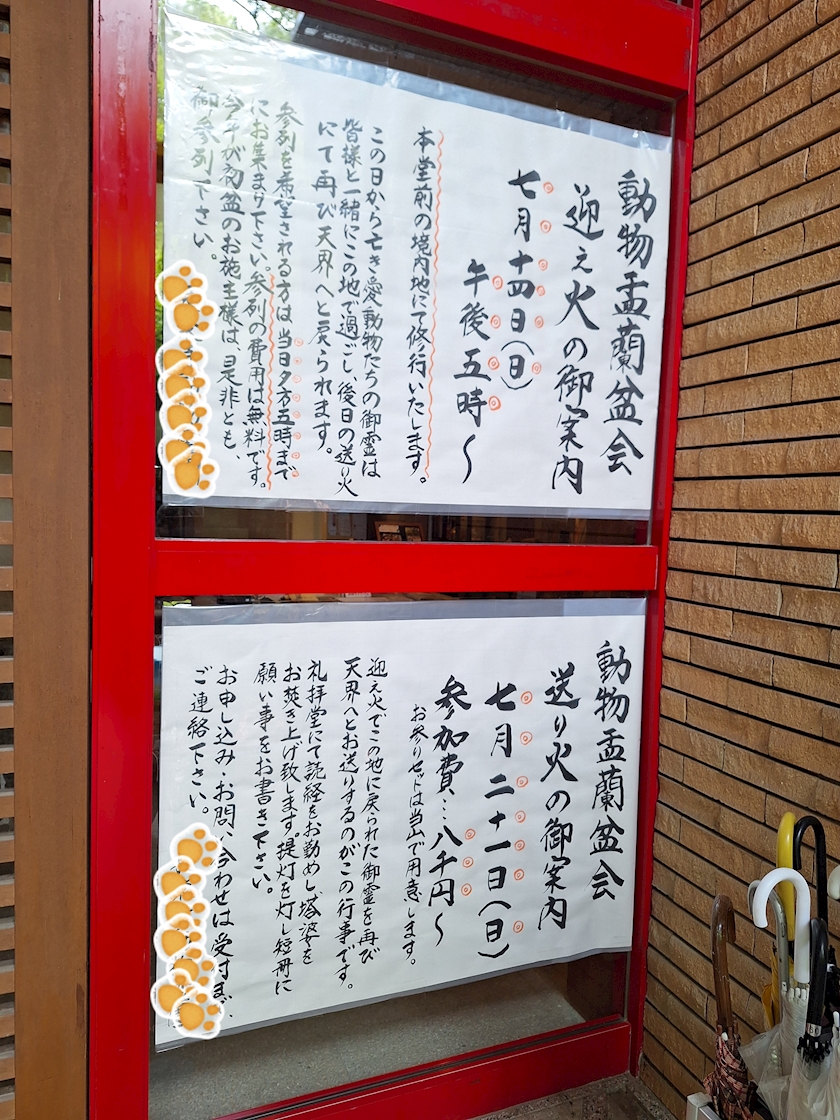 動物盂蘭盆会
迎え火の御案内
七月十四日(日)
午後五時〜
本堂前の境内地にて修行いたします。
この日から亡き愛動物たちの御霊は
皆様と一緒にこの地で過ごし、後日の送り火
にて再び天界へと戻られます。
参列を希望される方は当日夕方五時まで
にお集まり下さい。参列の費用は無料です。
今年が初盆のお施主様は、是非とも、
御参列下さい。
動物盂蘭盆会
送り火の御案内
七月二十一日(日)
参加費…八千円〜
お参りセットは当山で用意します。
迎え火でこの地に戻られた御霊を再び
天界へとお送りするのがこの行事です。
礼拝堂にて読経をお勤めし、塔婆を
お焚き上げ致します。提灯を灯し短冊に
願い事をお書き下さい。
お申し込み・お問い合わせは受付まで、
ご連絡下さい。